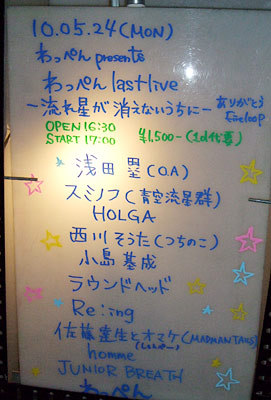 10.05.24(MON)
わっぺん presents
わっぺん last live
～流れ星が消えないうちに～
ありがとう
Fireloop
OPEN 16:30
START 17:00
¥1,500-(1d代要)
浅田 塁(O.A)
スミノフ(青空流星群)
HOLGA
西川そうた(つちのこ)
小島 基成
ラウンドヘッド
Re:ing
佐藤 生とオマケ(MADMANTAILS)
homme
JUNIOR BREATH
わっぺん